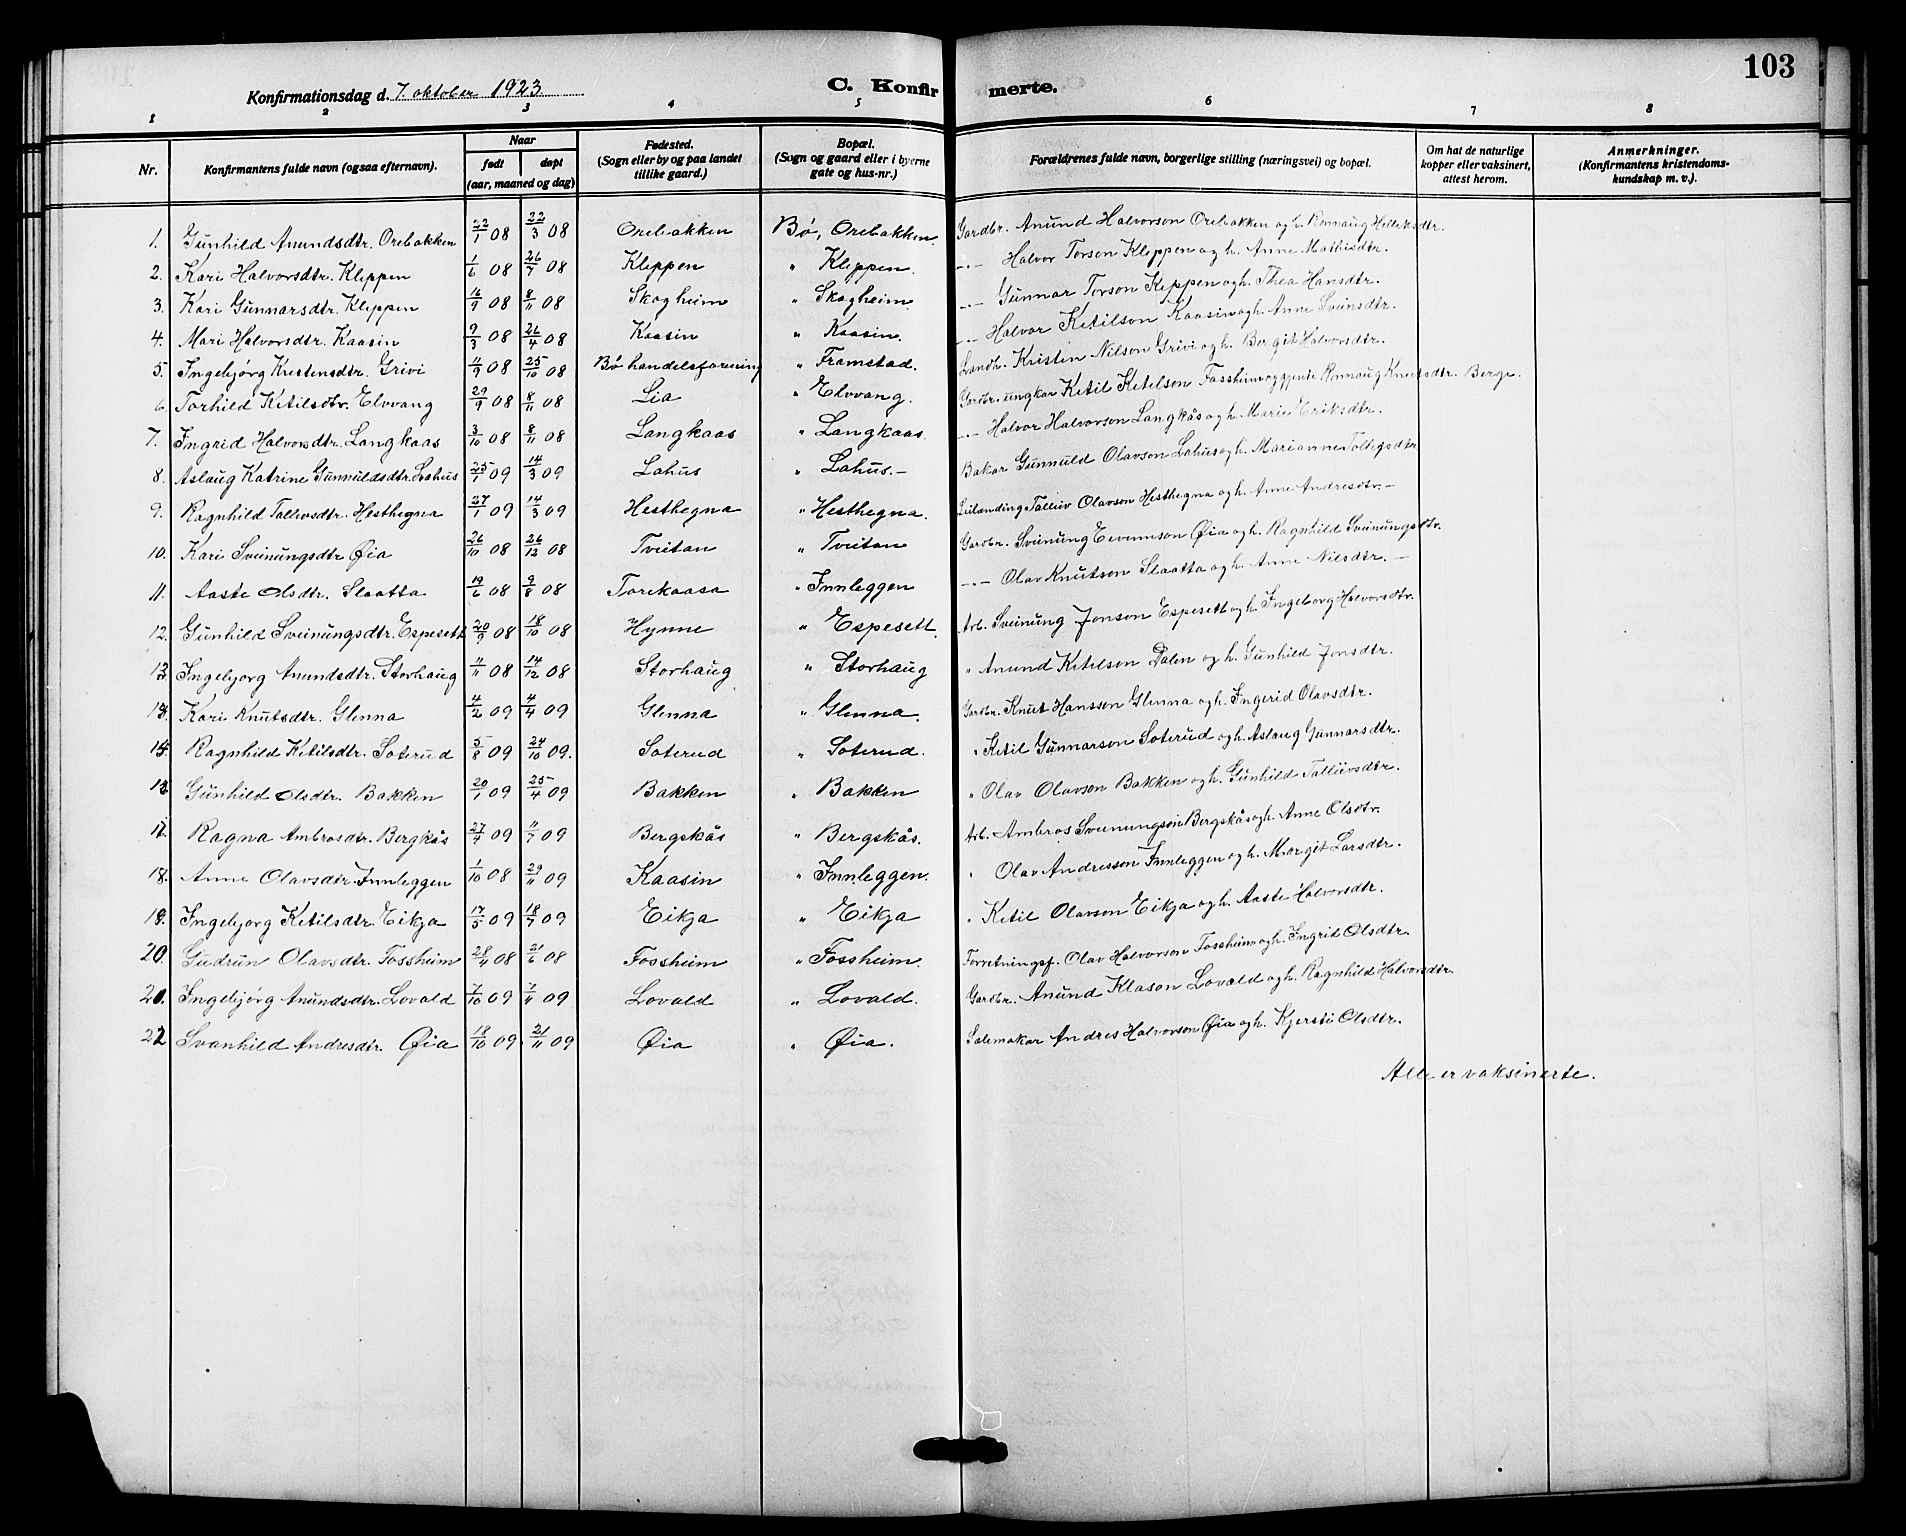 103
Konfirmationsdag d. 7. oktober 1923
C. Konfirmerte.
1 2 3 4 5 6 7 8
Nr. Konfirmantens fulde navn (ogsaa efternavn). Naar født døpt (aar, maaned og dag) Fødested. (Sogn eller by og paa landet tillike gaard.) Bopæl. (Sogn og gaard eller i byerne gate og hus-nr.) Forældrenes fulde navn, borgerlige stilling (næringsvei) og bopæl. Om hat de naturlige kopper eller vaksinert, attest herom. Anmerkninger. (Konfirmantens kristendoms-kundskap m. v.).
1. Gunhild Anundsdtr. Orebakken 22/1 08 22/3 08 Orebakken Bø, Orebakken. Gardbr. Anund Halvorson Orebakken og h. Ronnaug Helleksdtr.
2. Kari Halvorsdtr. Kleppen 1/6 08 26/7 08 Kleppen " Kleppen. -"- Halvor Torson Kleppen og h. Anne Mathisdtr.
3. Kari Gunnarsdtr. Kleppen 16/9 08 8/11 08 Skogheim " Skogheim. -"- Gunnar Torson Kleppen og h. Thea Hansdtr.
4. Mari Halvorsdtr. Kaasin 9/3 08 26/4 08 Kaasin " Kaasin. -"- Halvor Ketilson Kaasin og h. Anne Sveinsdtr.
5. Ingebjørg Kristensdtr. Grivi 11/9 08 25/10 08 Bø handelsforening " Framstad. Landh. Kristin Nilson Grivi og h. Bergit Halvorsdtr.
6. Torhild Ketilsdtr. Elvvang 29/9 08 8/11 08 Lia " Elvvang. Gardbr. ungkar Ketil Ketelson Fossheim og gjente Ronnaug Knutsdtr. Berge.
7. Ingrid Halvorsdtr. Langkaas 3/10 08 8/11 08 Langkaas " Langkaas. -"- Halvor Halvorson Langkås og h. Marie Eriksdtr.
8. Aslaug Katrine Gunnuldsdtr. Lahus 25/1 09 14/3 09 Lahus " Lahus.- Bakar Gunnuld Olavson Lahus og h. Marianne Tollegsdtr
9. Ragnhild Tallevsdtr. Hesthegna 27/1 09 14/3 09 Hesthegna " Hesthegna. Leilending Talleiv Olavson Hesthegna og h. Anne Andresdtr.-
10. Kari Sveinungsdtr Øia 26/10 08 26/12 08 Tveitan " Tveitan Gardbr. Sveinung Eivennson Øia og h. Ragnhild Sveinungsdtr.
11. Aaste Olsdtr. Slaatta 19/6 08 9/8 08 Torekaasa " Innleggen -"- Olav Knutson Slaatta og h. Anne Nilsdtr. -
12. Gunhild Sveinungsdtr. Espesett 20/9 08 18/10 08 Hynne " Espesett. Arb. Sveinung Jonson Espesett og h. Ingeborg Halvorsdtr.
13. Ingebjorg Anundsdtr. Storhaug 11/11 08 14/12 08 Storhaug " Storhaug " Anund Ketelson Dalen og h. Gunhild Jonsdtr.
14. Kari Knutsdtr. Glenna 4/2 09 4/4 09 Glenna " Glenna. Gardbr. Knut Hansson Glenna og h. Ingerid Olavsdtr.
15. Ragnhild Ketilsdtr. Soterud 5/8 09 24/10 09. Soterud " Soterud. " Ketil Gunnarson Soterud og h. Aslaug Gunnarsdtr.
Gunhild Olsdtr. Bakken 20/1 09 25/4 09 Bakken " Bakken " Olav Olavson Bakken og h. Gunhild Talleivsdtr.
17. Ragna Ambrosdtr. Bergkås 27/4 09 11/7 09 Bergskås " Bergskås. Arb. Ambros Sveinungson Bergskås og h. Anne Olsdtr.
18. Anne Olavsdtr. Innleggen 1/10 08 29/11 09 Kaasin " Innleggen. " Olav Andresson Innleggen og h. Margit Larsdtr.
19. Ingebjorg Ketilsdtr. Eikja 17/5 09 18/7 09 Eikja " Eikja " Ketil Olavson Eikja og h. Aaste Halvorsdtr.
20. Gudrun Olavsdtr. Fossheim 28/4 08 21/6 08 Fossheim " Fossheim. Forretningsf. Olav Halvorson Fossheim og h. Ingrid Olsdtr.
21. Ingebjørg Anundsdtr. Lovald 7/10 09 7/11 09 Lovald " Lovald. Gardbr. Anund Klason Lovald og h. Ragnhild Halvorsdtr.
22 Svanhild Andresdtr. Øia 18/10 09 21/11 09 Øia " Øia. Salemakar Andres Halvorson Øia og h. Kjersti Olsdtr.
Alle er vaksinerte.